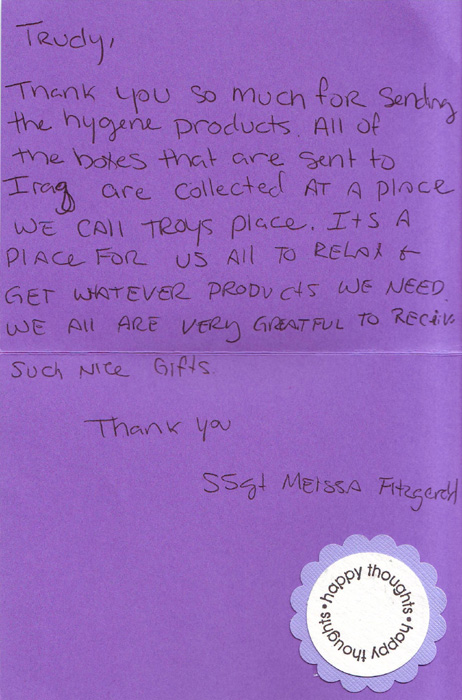 Trudy,
Thank you so much for sending
the hygene products. All of
the boxes that are sent to
Iraq are collected AT A place
WE CAll TROYS place. Its A
PlAcE FOR US All TO RELAX &
GET WHATEVER PRODUcts WE NEED.
WE All ARE VERY GREATFUL TO REciv
Such NicE Gifts.
Thank you
SSgt MElssA Fitzgerald
happy thoughts • happy thoughts •